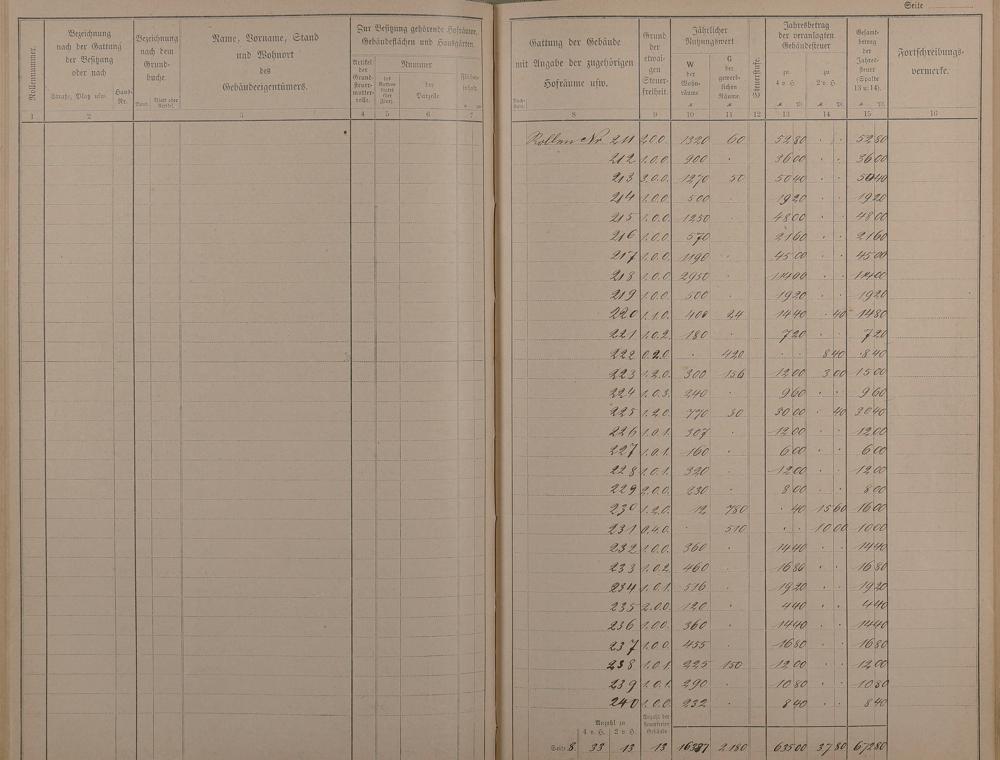 Seite
Rollennummer.
Bezeichnung
nach der Gattung
der Besitzung
oder nach
Straße, Platz usw.
Haus-
Nr.
Bezeichnung
nach dem
Grund-
buche.
Band.
Blatt oder
Artikel.
Name, Vorname, Stand
und Wohnort
des
Gebäudeeigentümers.
Zur Besitzung gehörende Hofräume,
Gebäudeflächen und Hausgärten.
Artikel
der
Grund-
steuer-
mutter-
rolle.
Nummer
des
Karten-
blatts
der
Parzelle
Flächen-
inhalt.
1 2 3 4 5 6 7
Gattung der Gebäude
mit Angabe der zugehörigen
Hofräume usw.
Grund
der
etwai-
gen
Steuer-
freiheit.
Jährlicher
Nutzungswert
W
der
Wohn-
räume
G
der
gewerb-
lichen
Räume.
Steuerstufe.
Jahresbetrag
der veranlagten
Gebäudesteuer
zu
4 v. H.
zu
2 v. H.
Gesamt-
betrag
der
Jahres-
steuer
(Spalte
13 u. 14).
Fortschreibungs-
vermerke.
8 9 10 11 12 13 14 15 16
Rollen Nr. 211 2.0.0. 1320 60 52 80 . . 52 80
212 1.0.0. 900 . 36 00 . . 36 00
213 3.0.0. 1270 50 50 40 . . 50 40
214 1.0.0. 500 . 19 20 . . 19 20
215 1.0.0. 1250 . 48 00 . . 48 00
216 1.0.0. 570 . 21 60 . . 21 60
217 1.0.0. 1190 . 45 00 . . 45 00
218 1.0.0. 2950 . 114 00 . . 114 00
219 1.0.0. 500 . 19 20 . . 19 20
220 1.1.0. 408 24 14 40 . 40 14 80
221 1.0.2. 180 . 7 20 . . 7 20
222 0.2.0. . 420 . . 8 40 8 40
223 1.2.0. 300 156 12 00 3 00 15 00
224 1.0.3. 240 . 9 60 . . 9 60
225 1.2.0. 770 30 30 00 . 40 30 40
226 1.0.1. 307 . 12 00 . . 12 00
227 1.0.1. 160 . 6 00 . . 6 00
228 1.0.1. 320 . 12 00 . . 12 00
229 2.0.0. 230 . 8 00 . . 8 00
230 1.2.0. 12 780 . 40 15 60 16 00
231 0.4.0. . 510 . . 10 00 10 00
232 1.0.0. 360 . 14 40 . . 14 40
233 1.0.2. 460 . 16 80 . . 16 80
234 1.0.1. 516 . 19 20 . . 19 20
235 2.0.0. 120 . 4 40 . . 4 40
236 1.0.0. 360 . 14 40 . . 14 40
237 1.0.0. 455 . 16 80 . . 16 80
238 1.0.1. 225 150 12 00 . . 12 00
239 1.0.1. 290 . 10 80 . . 10 80
240 1.0.0. 232 . 8 40 . . 8 40
Anzahl zu
4 v. H. 2 v. H.
Anzahl der
steuerfreien
Gebäude
Seite 8. 33 13 13 16387 2180 635 00 37 80 672 80